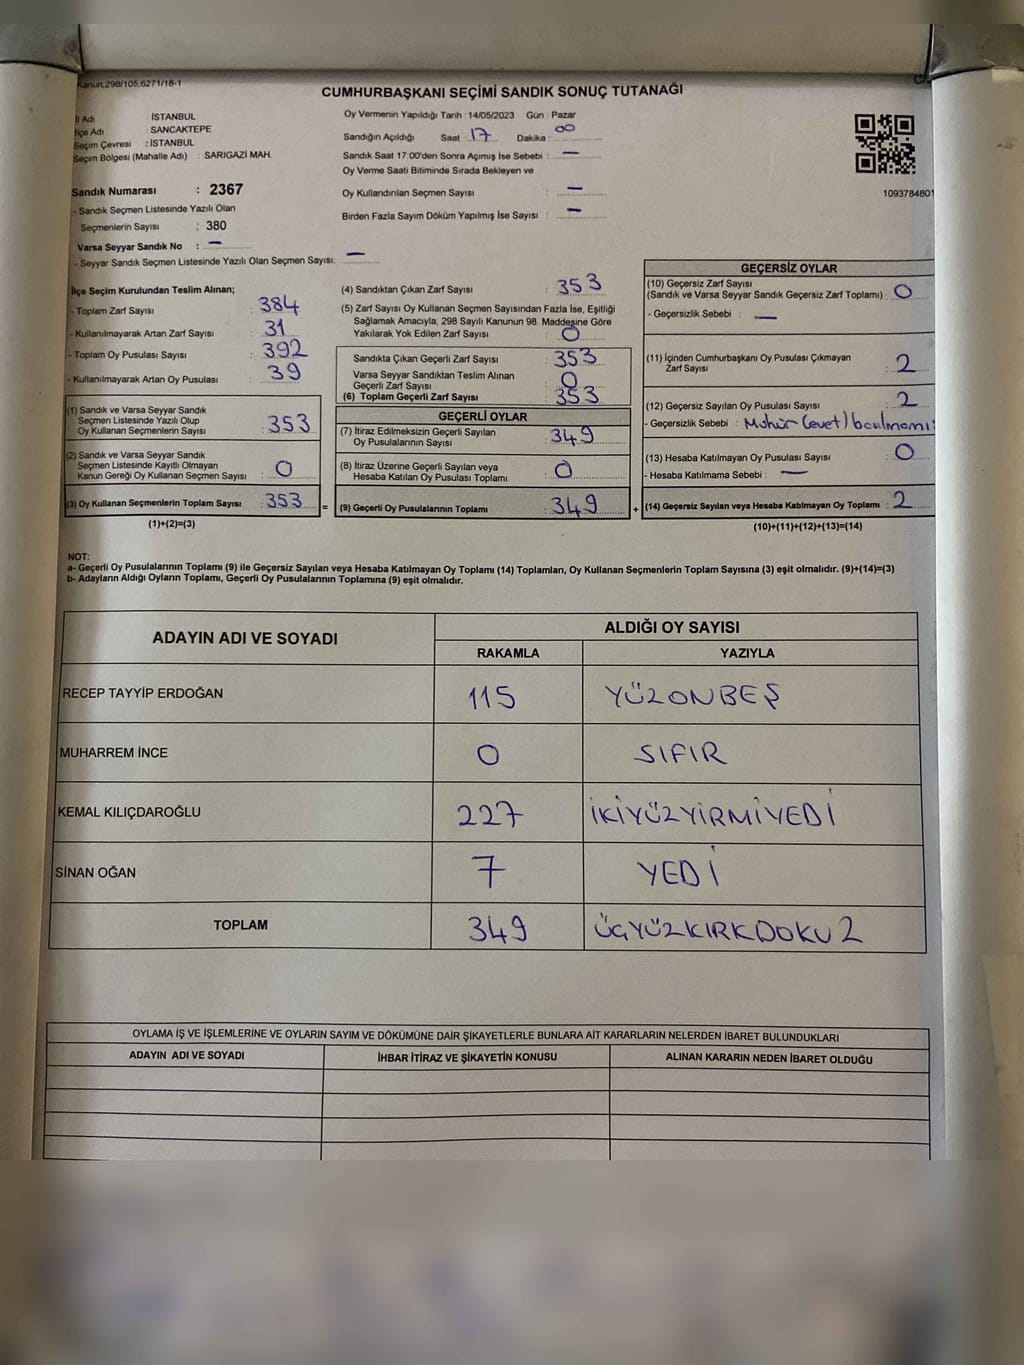 Kanun,298/105,6271/18-1
CUMHURBAŞKANI SEÇİMİ SANDIK SONUÇ TUTANAĞI
İl Adı : İSTANBUL
İlçe Adı : SANCAKTEPE
Seçim Çevresi : İSTANBUL
Seçim Bölgesi (Mahalle Adı) : SARIGAZİ MAH.
Sandık Numarası : 2367
- Sandık Seçmen Listesinde Yazılı Olan
Seçmenlerin Sayısı : 380
Varsa Seyyar Sandık No : —
- Seyyar Sandık Seçmen Listesinde Yazılı Olan Seçmen Sayısı: —
Oy Vermenin Yapıldığı Tarih : 14/05/2023 Gün : Pazar
Sandığın Açıldığı Saat : 17 Dakika : 00
Sandık Saat 17:00'den Sonra Açımış İse Sebebi : —
Oy Verme Saati Bitiminde Sırada Bekleyen ve
Oy Kullandırılan Seçmen Sayısı : —
Birden Fazla Sayım Döküm Yapılmış İse Sayısı : —
1093784801
İlçe Seçim Kurulundan Teslim Alınan;
- Toplam Zarf Sayısı : 384
- Kullanılmayarak Artan Zarf Sayısı : 31
- Toplam Oy Pusulası Sayısı : 392
- Kullanılmayarak Artan Oy Pusulası : 39
(1) Sandık ve Varsa Seyyar Sandık
Seçmen Listesinde Yazılı Olup
Oy Kullanan Seçmenlerin Sayısı : 353
(2) Sandık ve Varsa Seyyar Sandık
Seçmen Listesinde Kayıtlı Olmayan
Kanun Gereği Oy Kullanan Seçmen Sayısı : 0
(3) Oy Kullanan Seçmenlerin Toplam Sayısı : 353
(1)+(2)=(3)
(4) Sandıktan Çıkan Zarf Sayısı : 353
(5) Zarf Sayısı Oy Kullanan Seçmen Sayısından Fazla İse, Eşitliği
Sağlamak Amacıyla, 298 Sayılı Kanunun 98. Maddesine Göre
Yakılarak Yok Edilen Zarf Sayısı : 0
Sandıkta Çıkan Geçerli Zarf Sayısı : 353
Varsa Seyyar Sandıktan Teslim Alınan
Geçerli Zarf Sayısı : 0
(6) Toplam Geçerli Zarf Sayısı : 353
=
GEÇERLİ OYLAR
(7) İtiraz Edilmeksizin Geçerli Sayılan
Oy Pusulalarının Sayısı : 349
(8) İtiraz Üzerine Geçerli Sayılan veya
Hesaba Katılan Oy Pusulası Toplamı : 0
(9) Geçerli Oy Pusulalarının Toplamı : 349
+
GEÇERSİZ OYLAR
(10) Geçersiz Zarf Sayısı
(Sandık ve Varsa Seyyar Sandık Geçersiz Zarf Toplamı) : 0
- Geçersizlik Sebebi : —
(11) İçinden Cumhurbaşkanı Oy Pusulası Çıkmayan
Zarf Sayısı : 2
(12) Geçersiz Sayılan Oy Pusulası Sayısı : 2
- Geçersizlik Sebebi : Mühür (evet)
(13) Hesaba Katılmayan Oy Pusulası Sayısı : 0
- Hesaba Katılmama Sebebi : —
(14) Geçersiz Sayılan veya Hesaba Katılmayan Oy Toplamı : 2
(10)+(11)+(12)+(13)=(14)
NOT:
a- Geçerli Oy Pusulalarının Toplamı (9) ile Geçersiz Sayılan veya Hesaba Katılmayan Oy Toplamı (14) Toplamları, Oy Kullanan Seçmenlerin Toplam Sayısına (3) eşit olmalıdır. (9)+(14)=(3)
b- Adayların Aldığı Oyların Toplamı, Geçerli Oy Pusulalarının Toplamına (9) eşit olmalıdır.
ADAYIN ADI VE SOYADI
ALDIĞI OY SAYISI
RAKAMLA YAZIYLA
RECEP TAYYİP ERDOĞAN 115 YÜZONBEŞ
MUHARREM İNCE 0 SIFIR
KEMAL KILIÇDAROĞLU 227 İKİYÜZYİRMİYEDİ
SİNAN OĞAN 7 YEDİ
TOPLAM 349 ÜÇYÜZKIRKDOKUZ
OYLAMA İŞ VE İŞLEMLERİNE VE OYLARIN SAYIM VE DÖKÜMÜNE DAİR ŞİKAYETLERLE BUNLARA AİT KARARLARIN NELERDEN İBARET BULUNDUKLARI
ADAYIN ADI VE SOYADI İHBAR İTİRAZ VE ŞİKAYETİN KONUSU ALINAN KARARIN NEDEN İBARET OLDUĞU